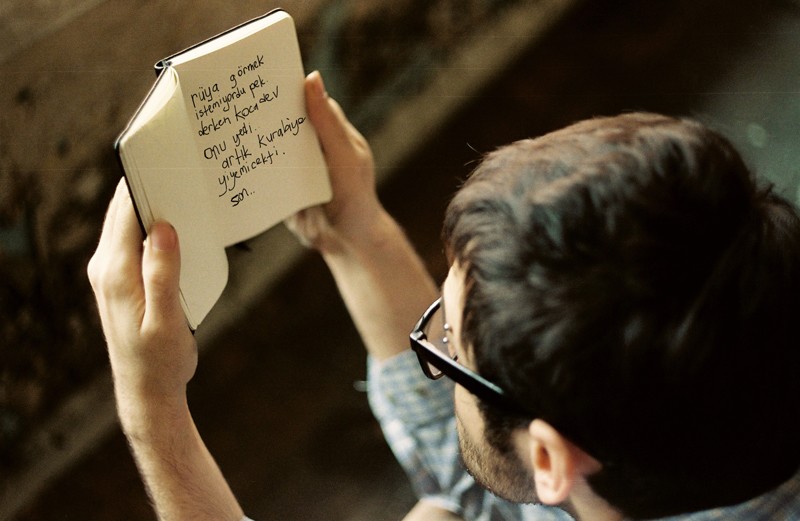 rüya görmek
istemiyordu pek.
derken koca dev
onu yedi..
artık kurabiye
yiyemicekti.
son..